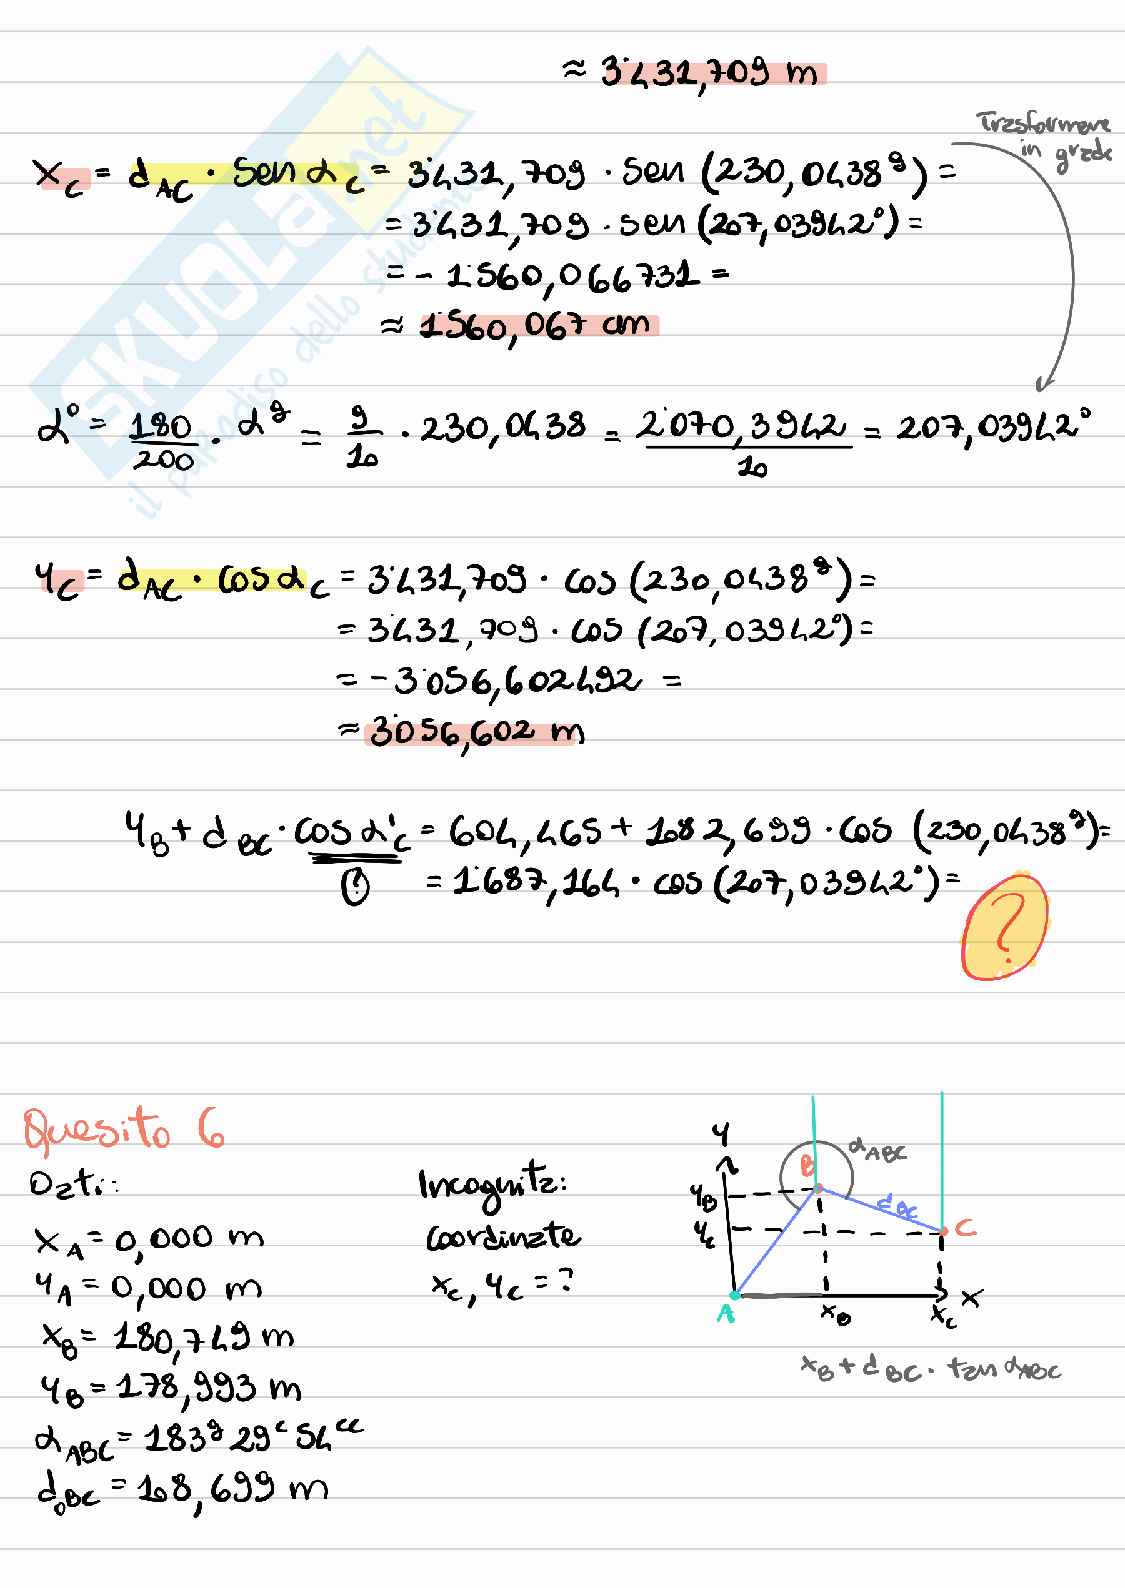 ≈ 3'431,709 m
Trasformare
in grade
x_C = d_AC · sen α_C = 3'431,709 · sen (230,0438^g) =
= 3'431,709 · sen (207,03942°) =
= - 1'560,066731 =
≈ 1'560,067 cm
α° = 180/200 · α^g = 9/10 · 230,0438 = 2'070,3942/10 = 207,03942°
y_C = d_AC · cos α_C = 3'431,709 · cos (230,0438^g) =
= 3'431,709 · cos (207,03942°) =
= - 3'056,602492 =
≈ 3'056,602 m
y_B + d_BC · cos α'_C = 604,465 + 1'082,699 · cos (230,0438^g) =
= 1'687,164 · cos (207,03942°) =
?
SKUOLA.net
il paradiso dello studente
Quesito 6
Dati:
x_A = 0,000 m
y_A = 0,000 m
x_B = 180,749 m
y_B = 178,993 m
α_ABC = 183^g 29^c 54^cc
d_0BC = 108,699 m
Incognita:
Coordinate
x_C, y_C = ?
y
B
α_ABC
y_B
d_BC
y_C
C
A
x_B
x_C
x
x_B + d_BC · tan α_ABC